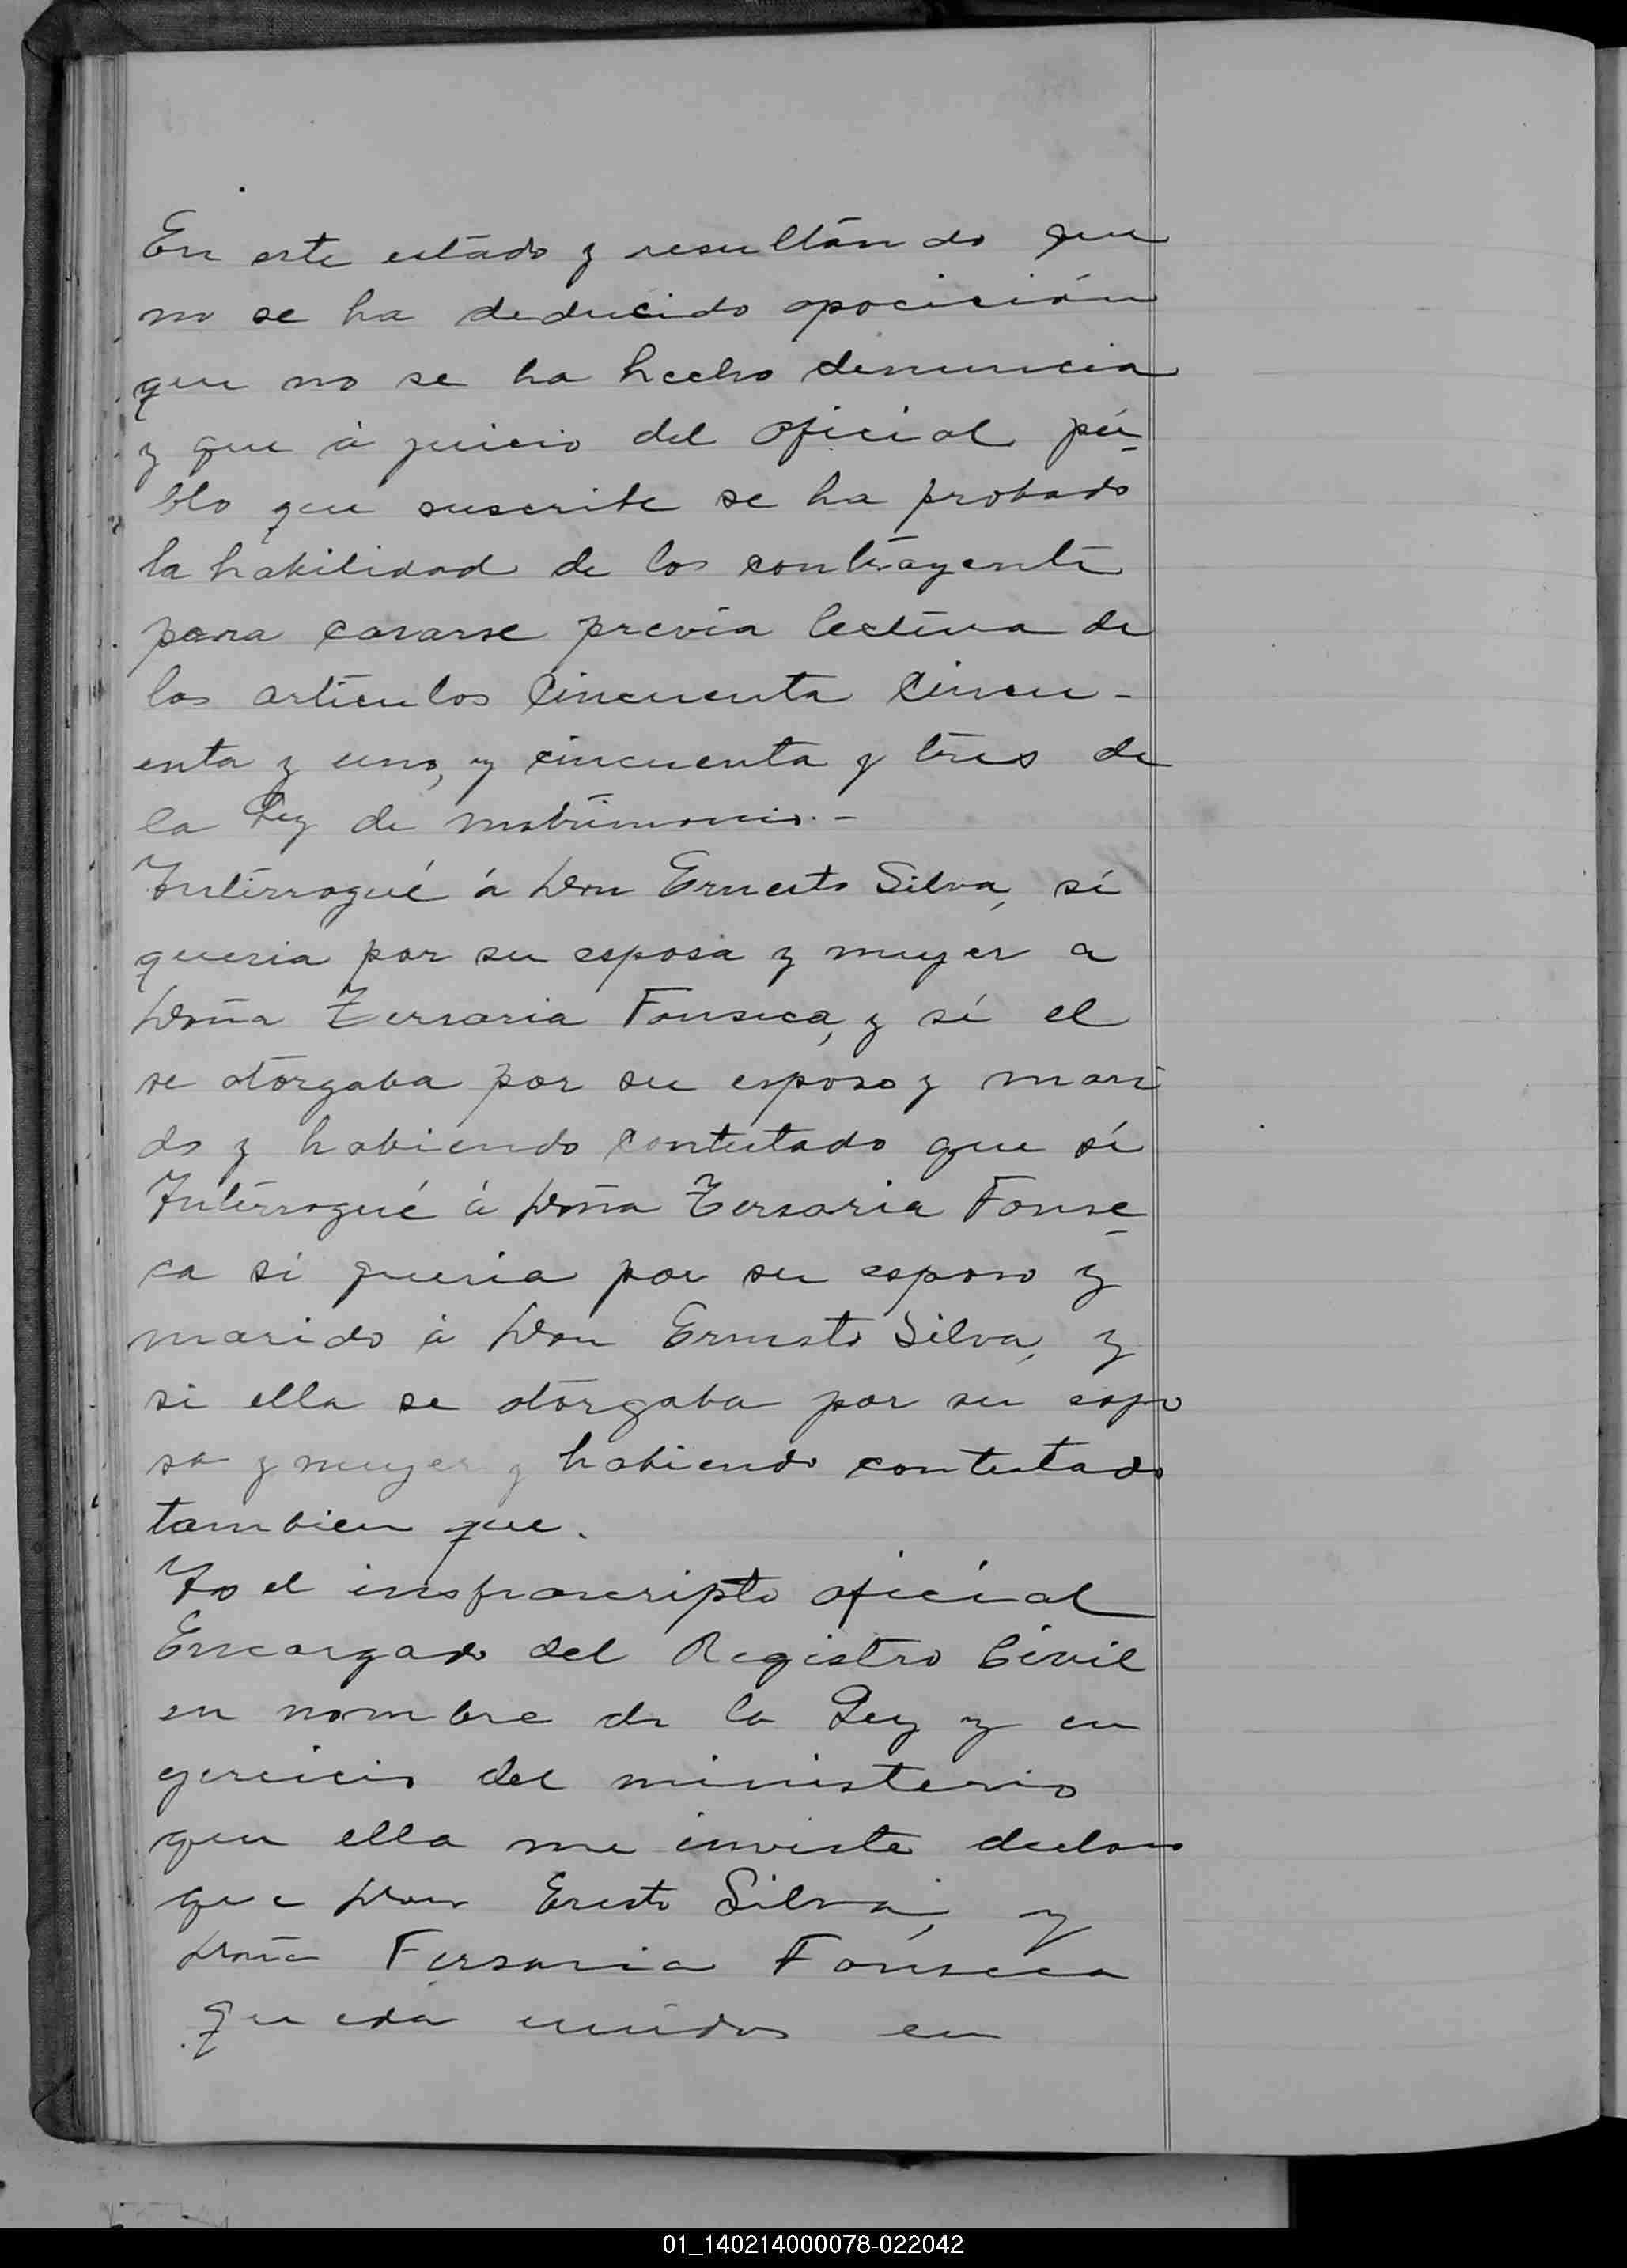 En este estado y resultando que
no se ha deducido oposición
que no se ha hecho denuncia
y que à juicio del oficial pú-
blo que suscribe se ha probado
la habilidad de los contrayente
para casarse previa lectura de
los articulos cincuenta cincu-
enta y uno, y cincuenta y tres de
la Ley de matrimonio.-
Interrogué á Don Ernesto Silva, sí
queria por su esposa y muger a
Doña Tersaria Fonseca, y sí el
se otorgaba por su esposo y mari
do y habiendo contestado que sí
Interrogué à Doña Tersaria Fonse-
ca si queria por su esposo y
marido à Don Ernesto Silva, y
si ella se otorgaba por su espo
sa y muger y habiendo contestado
tambien que.
Yo el insfrascripto oficial
Encargado del Registro Civil
en nombre de la Ley y en
gercicio del ministerio
que ella me inviste declaro
que Don Eresto Silva, y
Doña Tersaria Fonseca
queda unidos en
01_140214000078-022042